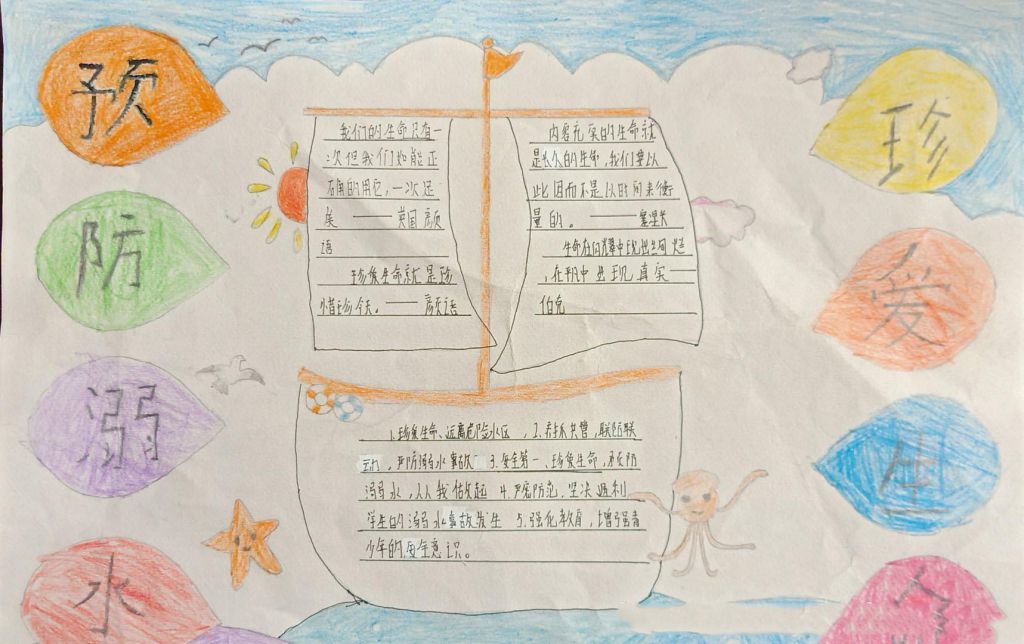 预
防
溺
水
我们的生命只有一
次但我们如能正
确的用它，一次足
矣——英国 谚
语
珍爱生命就是珍
惜珍今天。——谚语
内容充实的生命就
是长久的生命，我们要以
此因而不是以时间来衡
量的。——塞涅卡
生命在闪耀中现出
，在平凡中出现真实——
伯克
1.珍爱生命、远离危险水区，2.群抓共管，联防联
动，严防溺水事故 3.安全第一、珍爱生命，预防
溺水，人人我做起 4.严密防范，坚决遏制
学生的溺水事故发生 5.强化教育，增强青
少年的安全意识。
珍
爱
生